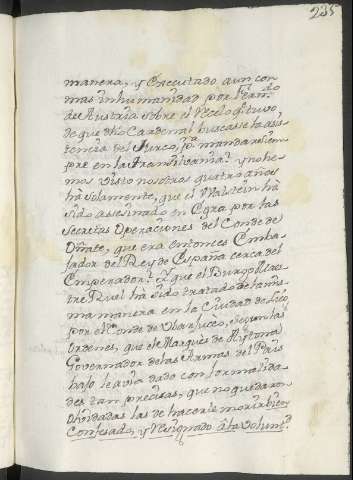 235
manera, y Executado aun con
mas inhumanidad por Fern.do
de Austria sobre el recelo q.e tuvo,
de que dho Cardenal buscase la asis
tencia del Turco, p.a mandar siem
pre en la Transilvania? y no he
mos visto nosotros quatro años
hà solamente, que el Walstein hà
sido asesinado en Egra por las
Secretas Operaciones del Conde de
Oñate, que era entonces Emba
jador del Rey de España cerca del
Emperador? y que el Burgo Maes
tre Ruel hà sido tratado de la mis
ma manera en la Ciudad de Liej
por el Conde de Warfuèe, segun las
ordenes, que el Marquès de Aytona
Governador de las Armas del Pais
bajo le avia dado con formalida
des tan precisas, que no quedaron
olvidadas las de hacerle morir bien
Confesado, y resignado à la Volunt.d